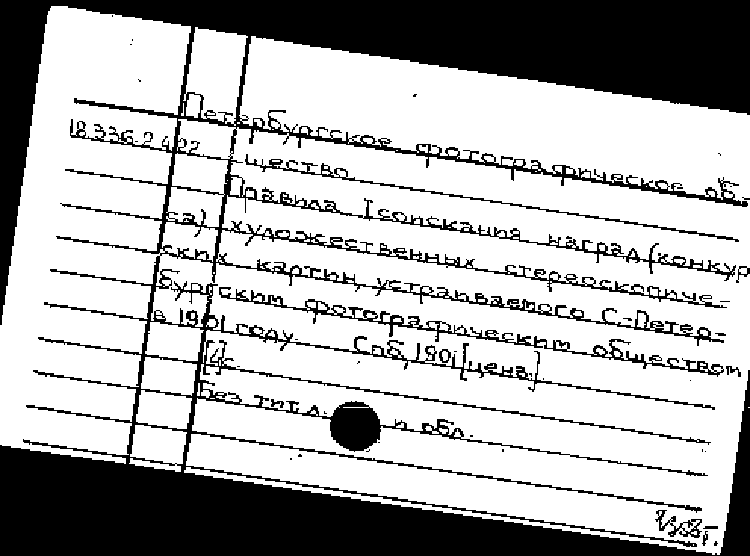 Петербургское фотографическое об-
18.336.2.422 щество
Правила I соискания наград (конкур
са) художественных стереоскопиче-
ских картин, устраиваемого С.-Петер-
бургским фотографическим обществом
в 1901 году. Спб, 1901 [ценз.]
[4] с
Без тит. л. и обл.